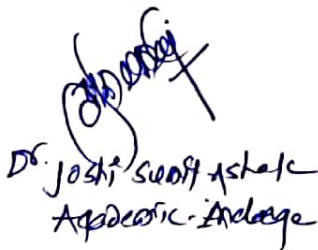 Dr. Joshi Sumit Ashok
Academic-Incharge